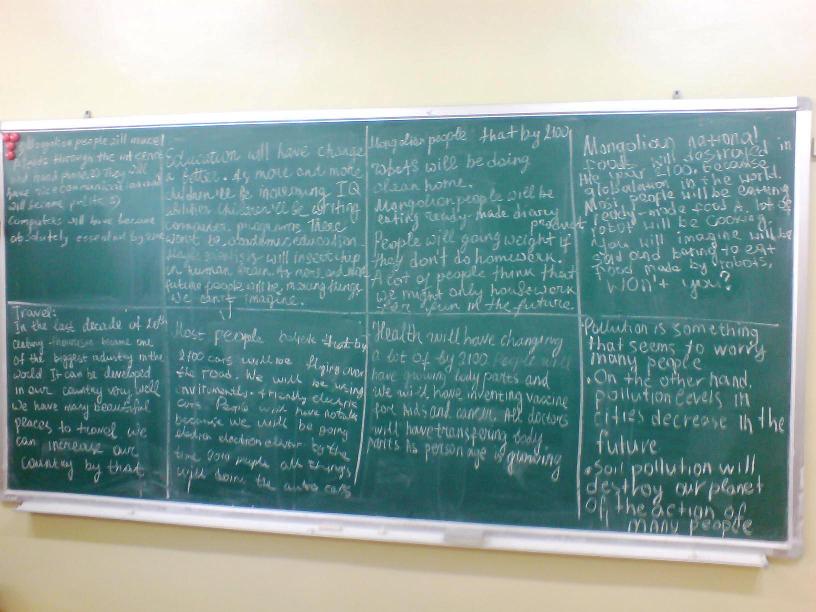 Mongolian people will
through the
and They will
have nice communication and
will become polite
Computers will have become
absolutely essential by
Education will have change
a better. As more and more
children'll be increasing IQ
children'll be writing
computer programs There
won't be academic education
will insert chip
in human brain. As more and more
future people will be moving things
We can't imagine.
Mongolian people that by 2100
robots will be doing
clean home.
Mangolian people will be
eating ready-made diary
product
People will going weight if
they don't do homework.
A lot of people think that
we might only housework
for fun in the future.
Mongolian national
foods will desroied in
the year 2100. Because
globalation in the world.
Most people will be eating
ready-made food A lot of
robot will be cooking.
you will imagine will be
sad and hating to eat
food made by robots,
won't you?
Travel:
In the last decade of 20th
century became one
of the biggest industry in the
world It can be developed
in our country very well
We have many beautiful
peaces to travel we
can increase our
country by that
Most people believe that by
2100 cars will be flying over
the road. We will be using
friendly electric
cars. People will have not
because we will be going
by the
time 2100 people all things
will the cars
Health will have changing
a lot of by 2100 People will
have body parts and
we will have inventing vaccine
for Aids and cancer. All doctors
will have transfering body
parts As person age is
Pollution is something
that seems to worry
many people
• On the other hand,
pollution levels in
cities decrease in the
future
• Soil pollution will
destroy our planet
of the action of
many people